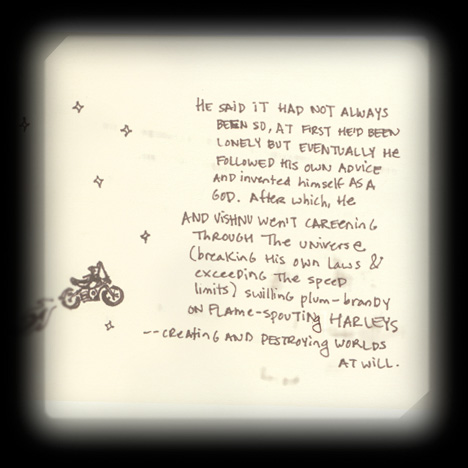 HE SAID IT HAD NOT ALWAYS
BEEN SO, AT FIRST HE'D BEEN
LONELY BUT EVENTUALLY HE
FOLLOWED HIS OWN ADVICE
AND invented himself AS A
GOD. After which, He
AND VISHNU WEN'T CAREENING
THROUGH The universe
(breaking His own Laws &
exceeding The speed
limits) swilling plum-brandy
ON FLAME-SPOUTING HARLEYS
--CREATING AND DESTROYING WORLDS
AT WILL.